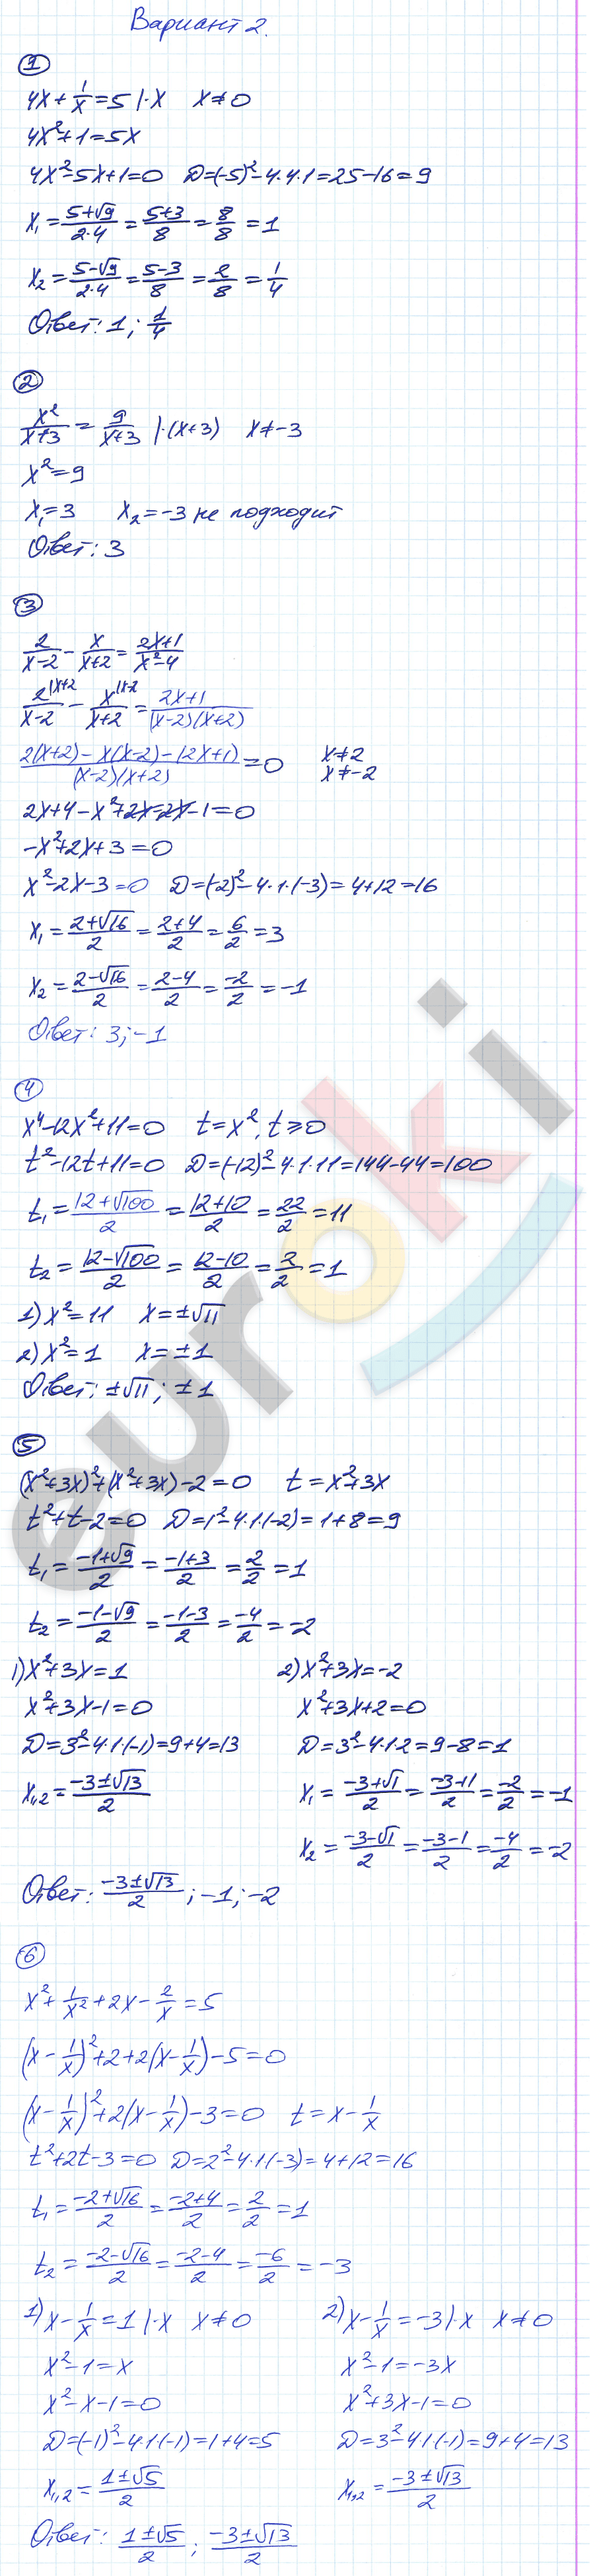 Вариант 2.
1
4x + 1/x = 5 | ·x   x ≠ 0
4x² + 1 = 5x
4x² - 5x + 1 = 0   D = (-5)² - 4·4·1 = 25 - 16 = 9
x₁ = (5+√9)/(2·4) = (5+3)/8 = 8/8 = 1
x₂ = (5-√9)/(2·4) = (5-3)/8 = 2/8 = 1/4
Ответ: 1; 1/4
2
x²/(x+3) = 9/(x+3) | ·(x+3)   x ≠ -3
x² = 9
x₁ = 3   x₂ = -3 не подходит
Ответ: 3
3
2/(x-2) - x/(x+2) = (2x+1)/(x²-4)
2|x+2/(x-2) - x|x-2/(x+2) = (2x+1)/((x-2)(x+2))
(2(x+2) - x(x-2) - (2x+1))/((x-2)(x+2)) = 0   x ≠ 2
x ≠ -2
2x + 4 - x² + 2x - 2x - 1 = 0
-x² + 2x + 3 = 0
x² - 2x - 3 = 0   D = (-2)² - 4·1·(-3) = 4 + 12 = 16
x₁ = (2+√16)/2 = (2+4)/2 = 6/2 = 3
x₂ = (2-√16)/2 = (2-4)/2 = -2/2 = -1
Ответ: 3; -1
4
x⁴ - 12x² + 11 = 0   t = x², t ≥ 0
t² - 12t + 11 = 0   D = (-12)² - 4·1·11 = 144 - 44 = 100
t₁ = (12+√100)/2 = (12+10)/2 = 22/2 = 11
t₂ = (12-√100)/2 = (12-10)/2 = 2/2 = 1
1) x² = 11   x = ±√11
2) x² = 1   x = ±1
Ответ: ±√11; ±1
5
(x²+3x)² + (x²+3x) - 2 = 0   t = x² + 3x
t² + t - 2 = 0   D = 1² - 4·1·(-2) = 1 + 8 = 9
t₁ = (-1+√9)/2 = (-1+3)/2 = 2/2 = 1
t₂ = (-1-√9)/2 = (-1-3)/2 = -4/2 = -2
1) x² + 3x = 1
x² + 3x - 1 = 0
D = 3² - 4·1·(-1) = 9 + 4 = 13
x₁,₂ = (-3±√13)/2
2) x² + 3x = -2
x² + 3x + 2 = 0
D = 3² - 4·1·2 = 9 - 8 = 1
x₁ = (-3+√1)/2 = (-3+1)/2 = -2/2 = -1
x₂ = (-3-√1)/2 = (-3-1)/2 = -4/2 = -2
Ответ: (-3±√13)/2; -1; -2
6
x² + 1/x² + 2x - 2/x = 5
(x - 1/x)² + 2 + 2(x - 1/x) - 5 = 0
(x - 1/x)² + 2(x - 1/x) - 3 = 0   t = x - 1/x
t² + 2t - 3 = 0   D = 2² - 4·1·(-3) = 4 + 12 = 16
t₁ = (-2+√16)/2 = (-2+4)/2 = 2/2 = 1
t₂ = (-2-√16)/2 = (-2-4)/2 = -6/2 = -3
1) x - 1/x = 1 | ·x   x ≠ 0
x² - 1 = x
x² - x - 1 = 0
D = (-1)² - 4·1·(-1) = 1 + 4 = 5
x₁,₂ = (1±√5)/2
2) x - 1/x = -3 | ·x   x ≠ 0
x² - 1 = -3x
x² + 3x - 1 = 0
D = 3² - 4·1·(-1) = 9 + 4 = 13
x₁,₂ = (-3±√13)/2
Ответ: (1±√5)/2; (-3±√13)/2
euroki